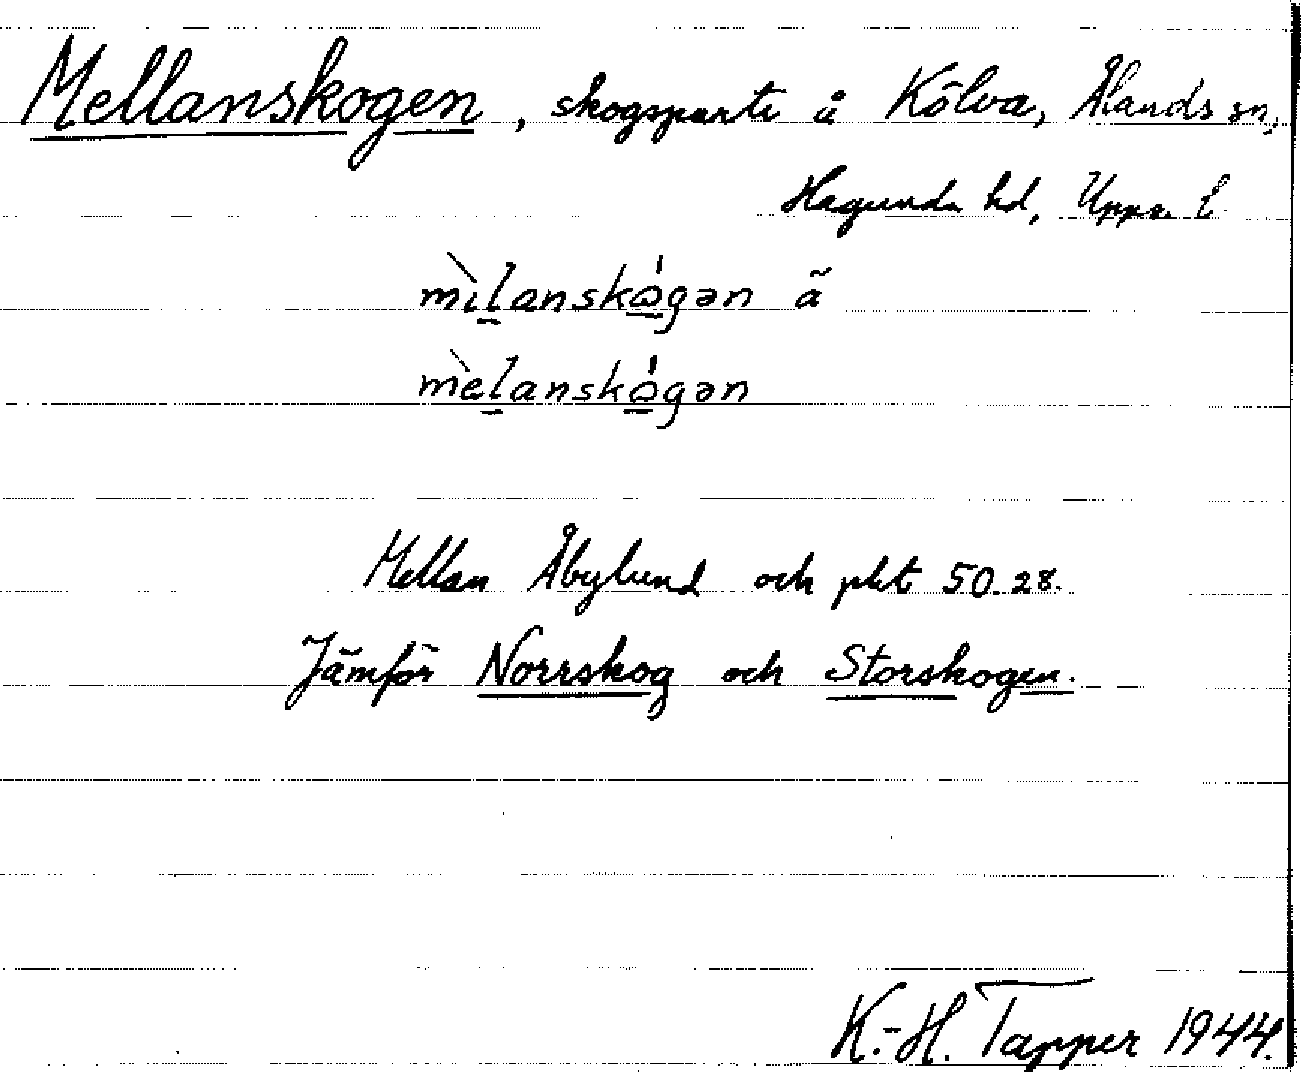 Mellanskogen, skogsparti å Kölva, Ålands sn,
Hagunda hd, Upps. l
mìlanskó̱gən ä
mèlanskó̱gən
Mellan Åbylund och pkt 50.28.
Jämför Norrskog och Storskogen.
K.-H. Tapper 1944.